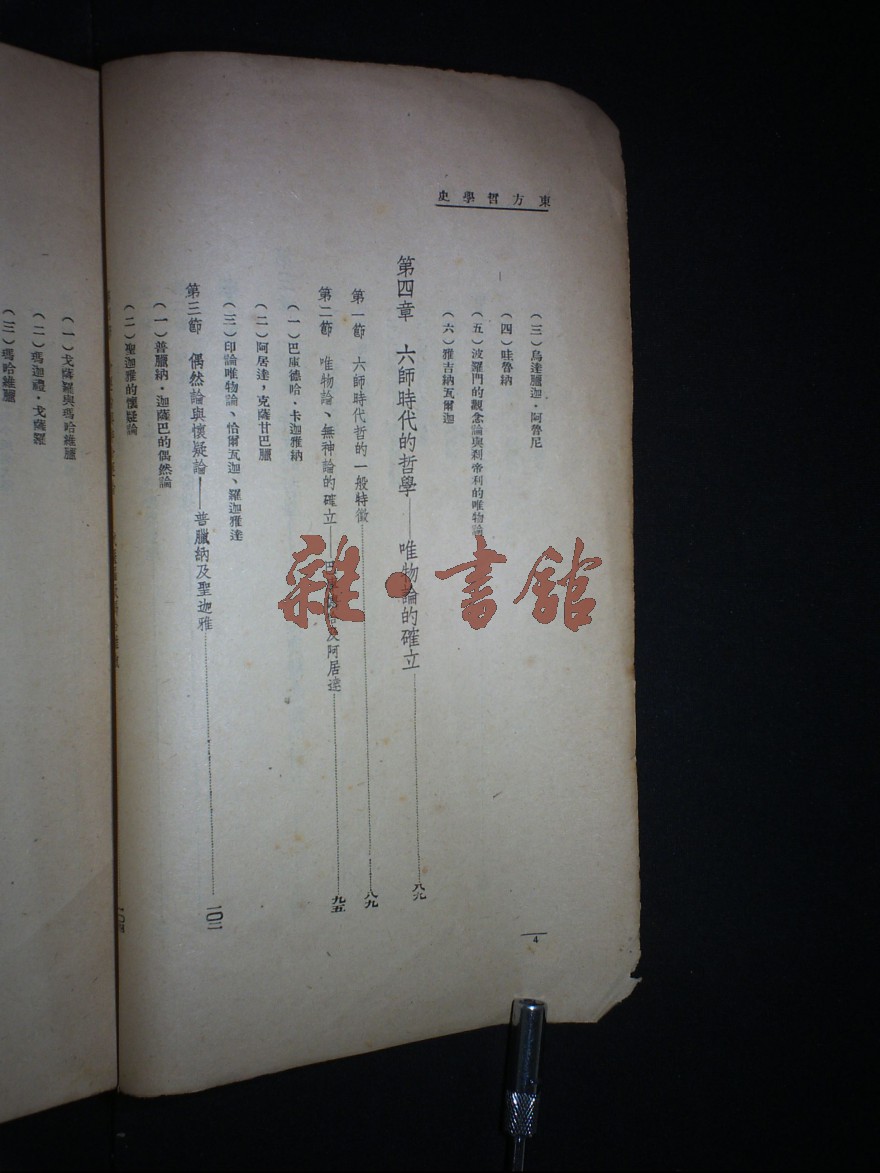 東方哲學史
（三）烏達臘迦・阿魯尼
（四）哇魯納
（五）波羅門的觀念論與刹帝利的唯物論
（六）雅吉納瓦爾迦
第四章　六師時代的哲學——唯物論的確立……八九
第一節　六師時代哲的一般特徵……八九
第二節　唯物論、無神論的確立——巴 及阿居達……九五
（一）巴庫德哈・卡迦雅納
（二）阿居達，克薩甘巴臘
（三）印論唯物論、恰爾瓦迦、羅迦雅達
第三節　偶然論與懷疑論——普臘納及聖迦雅……一〇二
（一）普臘納・迦薩巴的偶然論
（二）聖迦雅的懷疑論
一〇四
（一）戈薩羅與瑪哈維臘
（二）瑪迦禮・戈薩羅
（三）瑪哈維臘
4
雜・書館